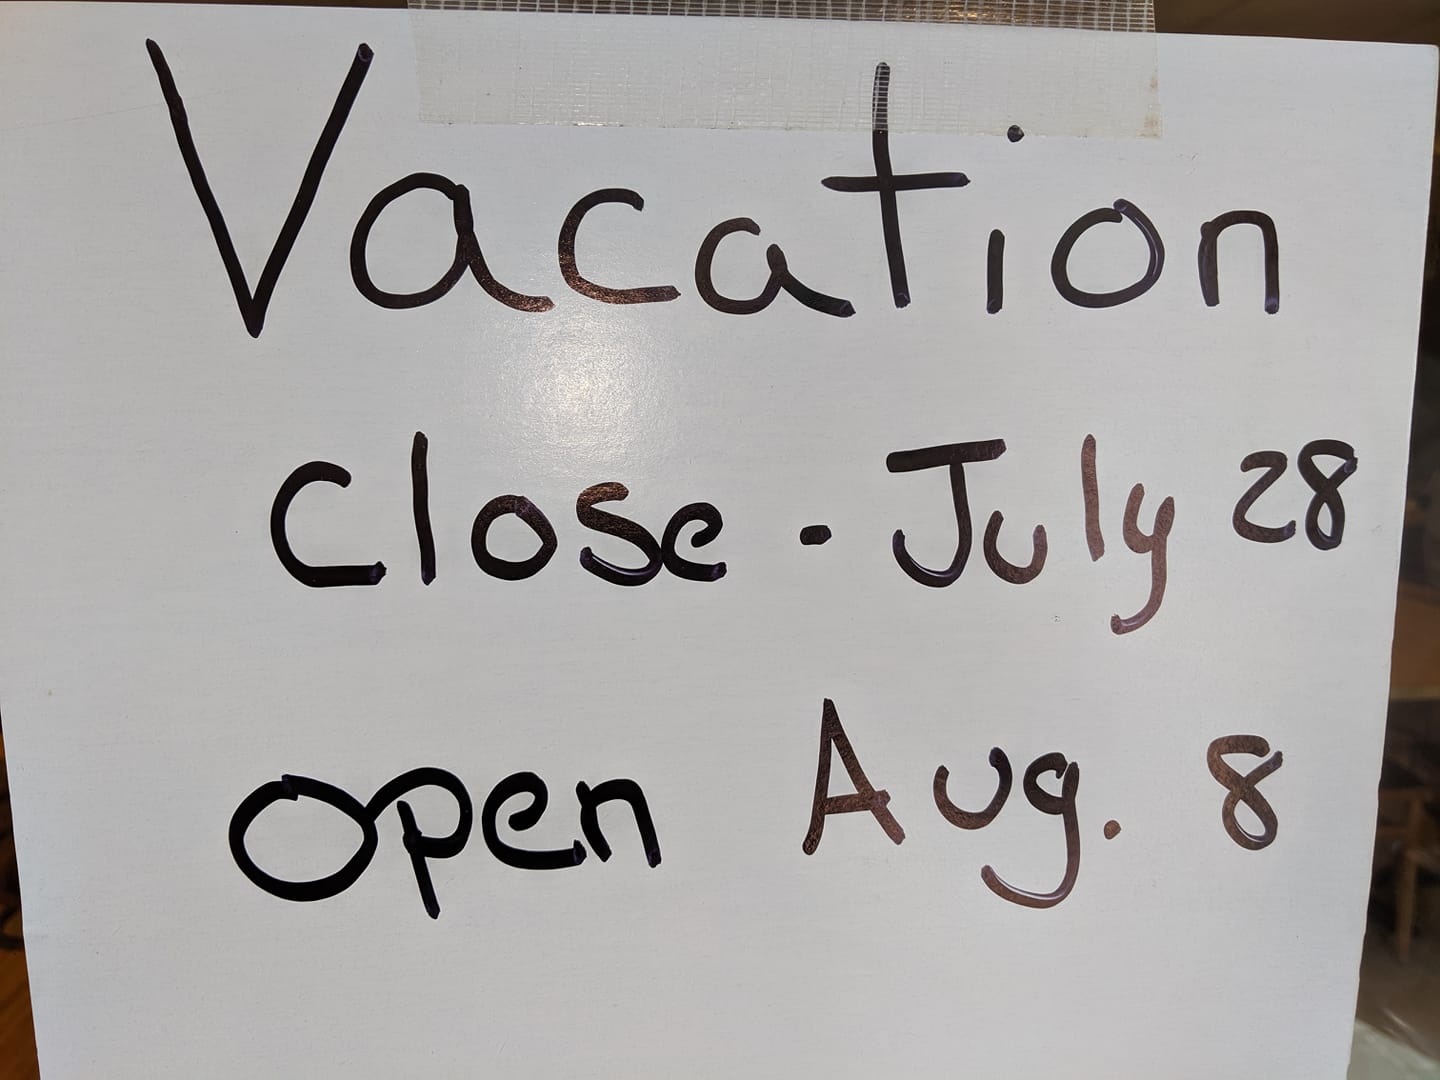 Vacation
Close - July 28
open Aug. 8